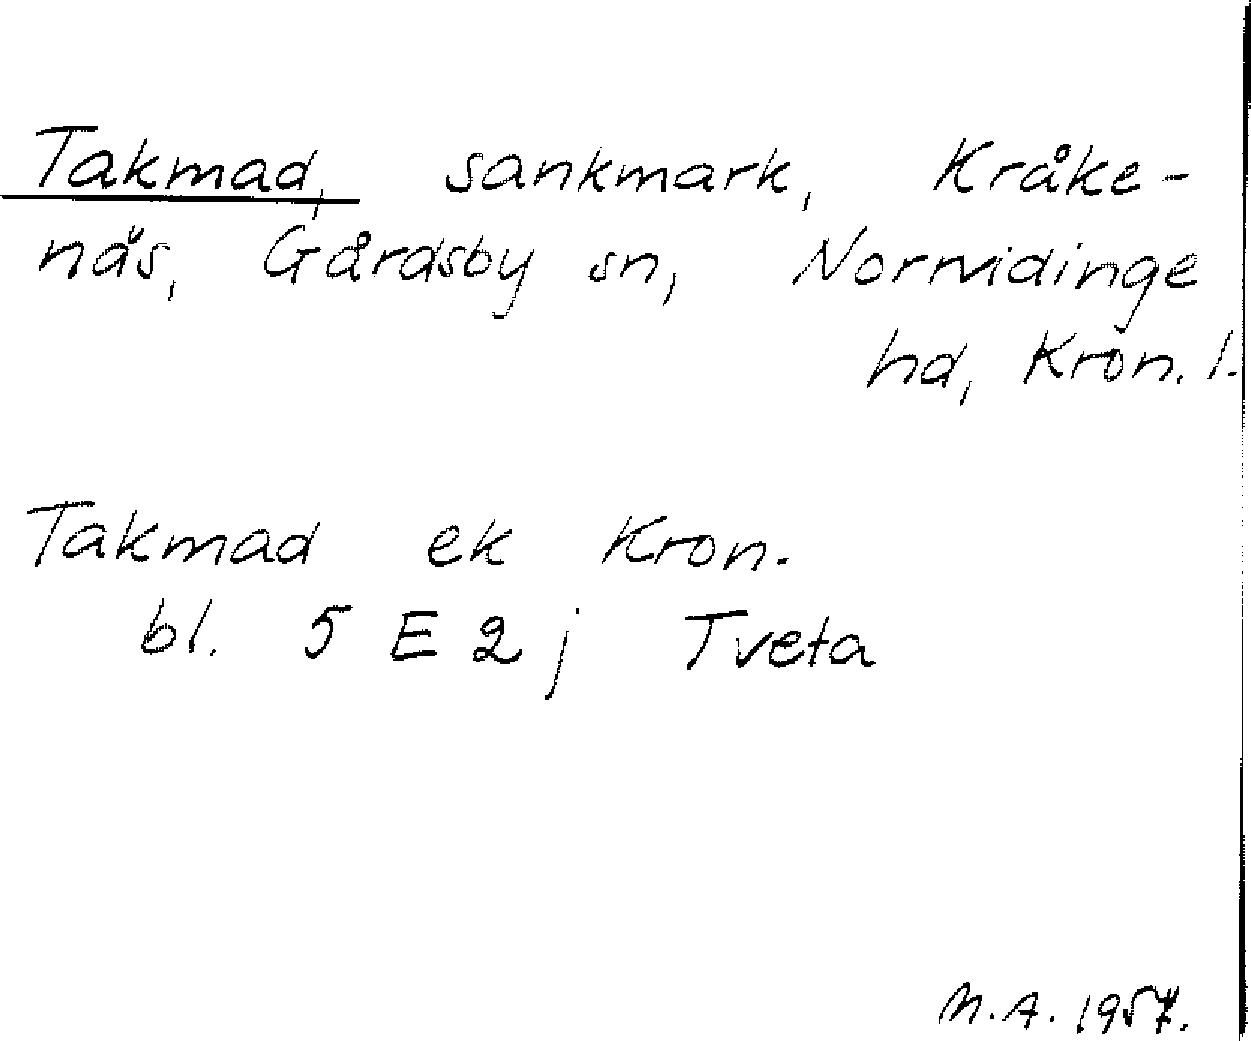 Takmad, sankmark, Kråke-
näs, Gårdsby sn, Norrvidinge
hd, Kron. l.
Takmad ek Kron.
bl. 5 E 2 j Tveta
M.A. 1957.